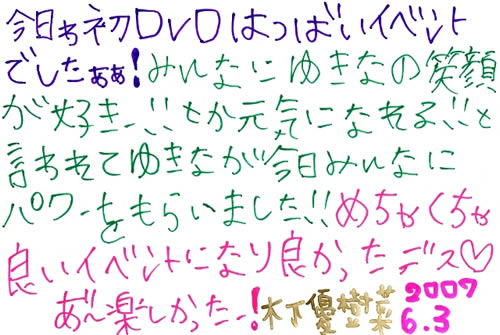 今日ゎ初DVDはつばいイベント
でしたぁぁ!みんなにゆきなの笑顔
が好き…!!とか元気になれる!!と
言われてゆきなが今日みんなに
パワーをもらいました!!めちゃくちゃ
良いイベントになり良かったデス♡
あ〜楽しかったー!木下優樹菜 2007 6.3